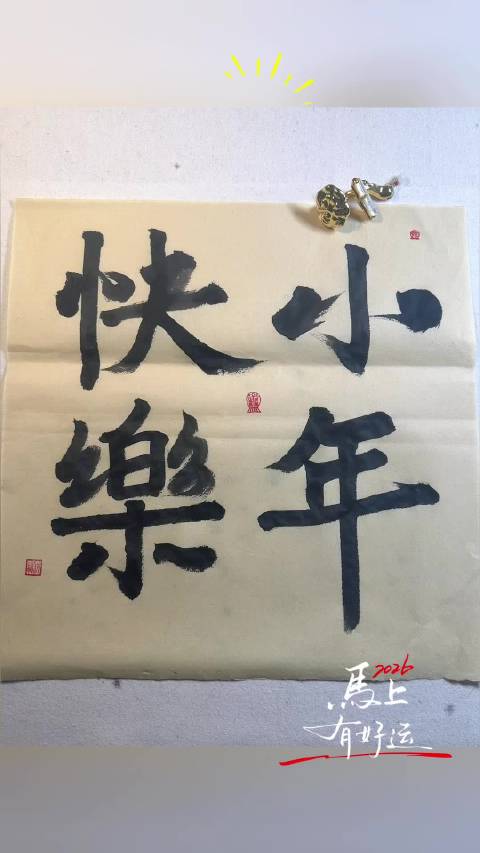 小年
快樂
2026
馬上
有好运